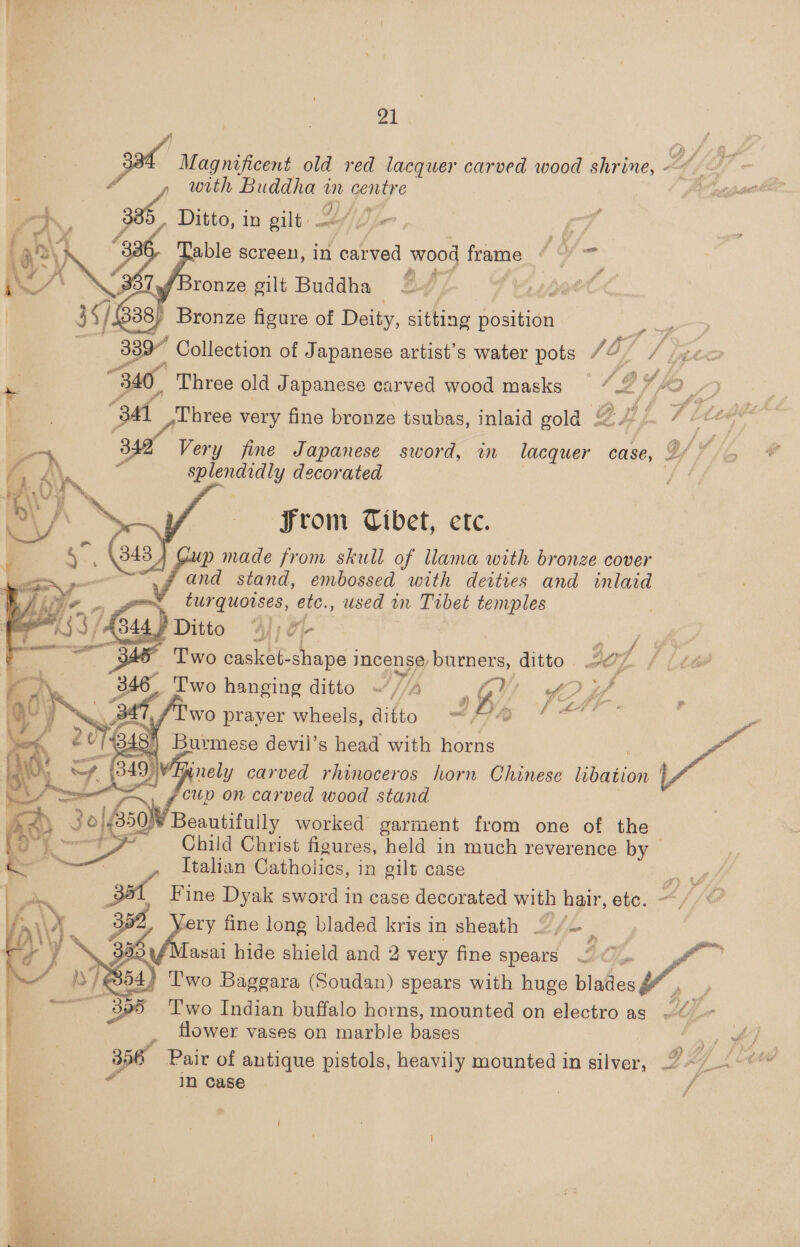 21
334 Magnificent old red lacquer carved wood shrine,
with Buddha in centre
335 Ditto, in gilt
336 Table screen, in carved wood frame
337 Bronze gilt Buddha
338 Bronze figure of Deity, sitting position
339 Collection of Japanese artist's water pots
340 Three old Japanese carved wood masks
341 Three very fine bronze tsubas, inlaid gold
342 Very fine Japanese sword, in lacquer case,
splendidly decorated
From Tibet, etc.
343 Cup made from skull of llama with bronze cover
and stand, embossed with deities and inlaid
turquoises, etc., used in Tibet temples
344 Ditto
345 Two casket-shape incense burners, ditto
346 Two hanging ditto
347 Two prayer wheels, ditto
348 Burmese devil's head with horns
349 Finely carved rhinoceros horn Chinese libation
cup on carved wood stand
350 Beautifully worked garment from one of the
Child Christ figures, held in much reverence by
Italian Catholics, in gilt case
351 Fine Dyak sword in case decorated with hair, etc.
352 Very fine long bladed kris in sheath
353 Masai hide shield and 2 very fine spears
354 Two Baggara (Soudan) spears with huge blades
355 Two Indian buffalo horns, mounted on electro as
flower vases on marble bases
356 Pair of antique pistols, heavily mounted in silver,
in case